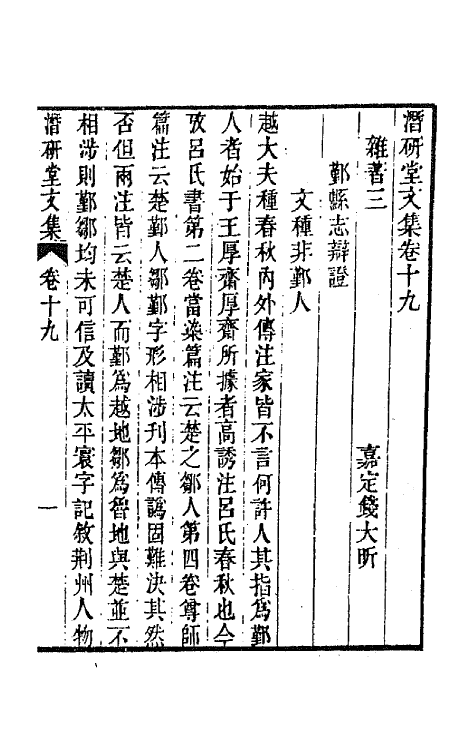 潛研堂文集卷十九
嘉定錢大昕
雜著三
鄞縣志辯證
文種非鄞人
越大夫種春秋內外傳注家皆不言何許人其指爲鄞
人者始于王厚齋厚齋所據者高誘注呂氏春秋也今
攷呂氏書第二卷當染篇注云楚之鄒人第四卷尊師
篇注云楚鄞人鄒鄞字形相涉刊本傳譌固難決其然
否但兩注皆云楚人而鄞爲越地鄒爲魯地與楚並不
相涉則鄞鄒均未可信及讀太平寰宇記敘荆州人物
潛研堂文集
卷十九
一